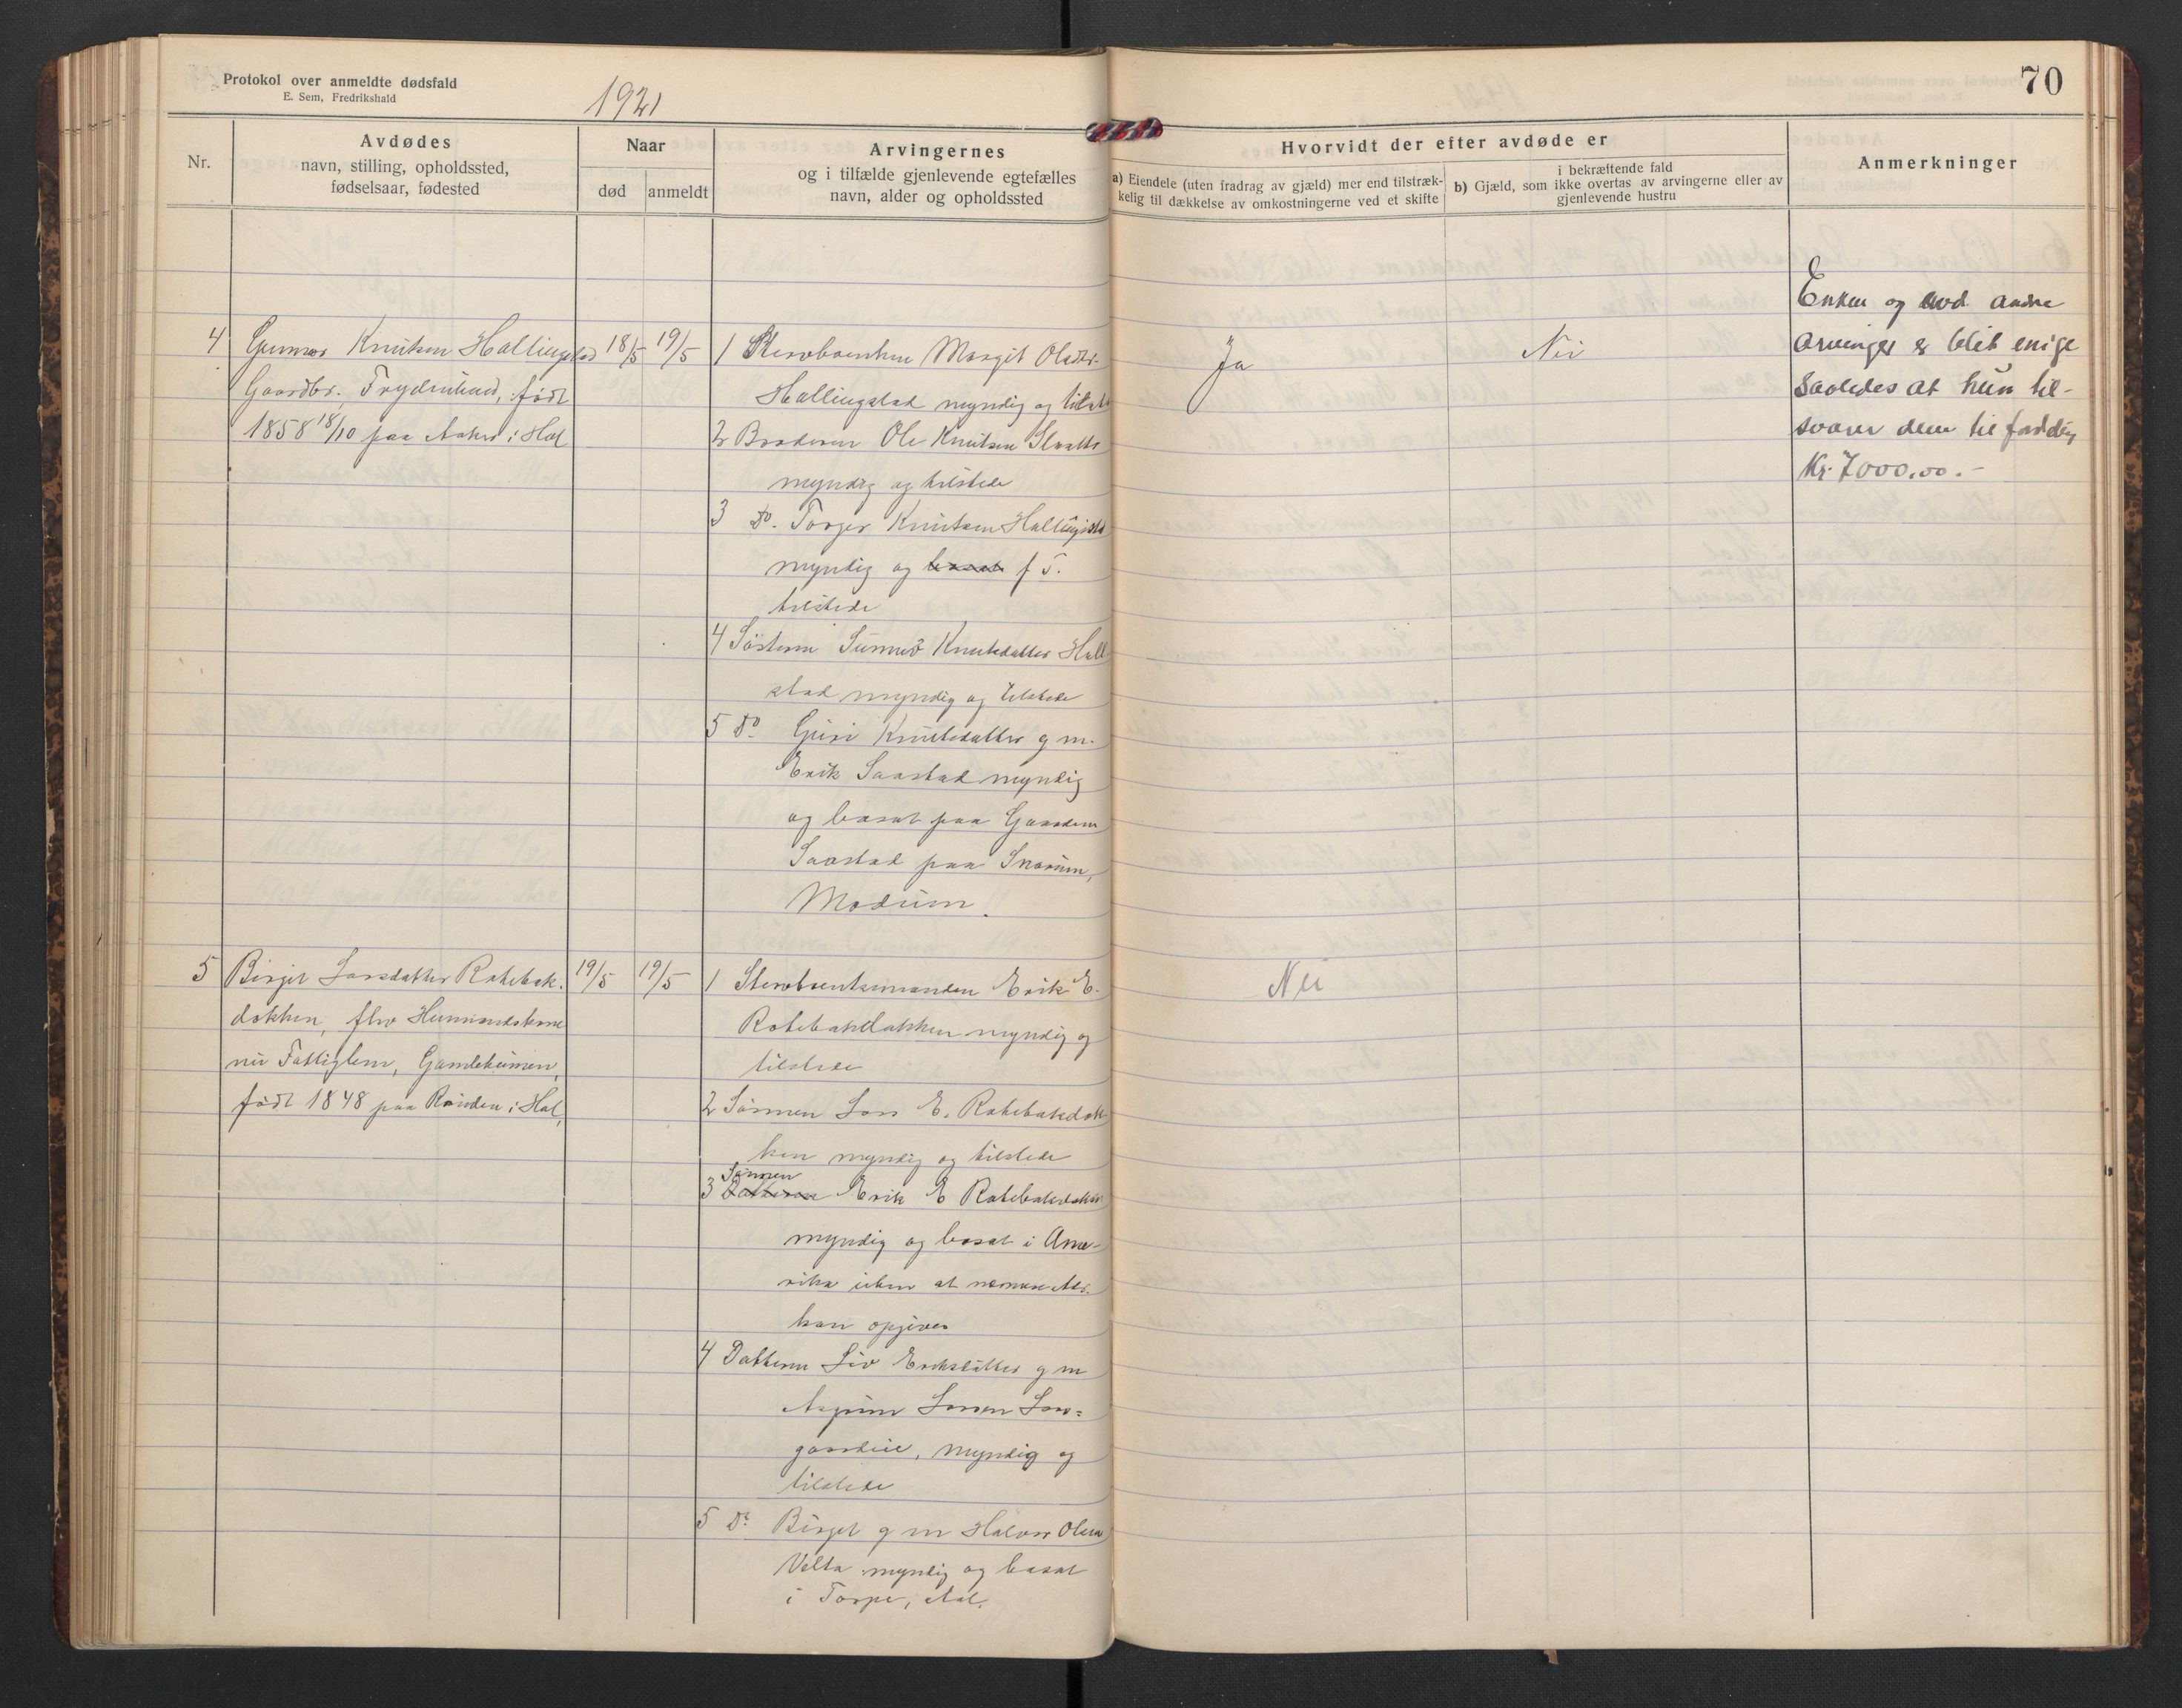 Protokol over anmeldte dødsfald
E. Sem, Fredrikshald
1921
70
Nr.
Avdødes
navn, stilling, opholdssted,
fødselsaar, fødested
Naar
død
anmeldt
Arvingernes
og i tilfælde gjenlevende egtefælles
navn, alder og opholdssted
Hvorvidt der efter avdøde er
a) Eiendele (uten fradrag av gjæld) mer end tilstræk-
kelig til dækkelse av omkostningerne ved et skifte
i bekræftende fald
b) Gjæld, som ikke overtas av arvingerne eller av
gjenlevende hustru
Anmerkninger
4
Gunnar Knutsen Hallingstad
Gaardbr. Frydenlund, født
1858 18/10 paa Aaker i Hol
18/5
19/5
1 Stervboenken Margit Olsdtr.
Hallingstad myndig og tilst
2 Broderen Ole Knutsen Slaatto
myndig og tilstede
3 Do. Torger Knutsen Hallingstad
myndig og bosat f T.
tilstede
4 Søsteren Sunnev Knutsdatter Hall
stad myndig og tilstede
5 Do Guri Knutsdatter g m.
Erik Saastad myndig
og bosat paa Gaarden
Saastad paa Snarum,
Modum.
Ja
Nei
Enken og avd. andre
arvinger er blit enige
saaledes at hun til-
svarer dem til fordeling
Kr. 7000.00.-
5
Birgit Larsdatter Rotebak.
dokken, fhv Husmandskone
nu Fattiglem, Gamleheimen,
født 1848 paa Raunden i Hol,
19/5
19/5
1 Stervboenkemanden Erik E.
Rotebakdokken myndig og
tilstede
2 Sønnen Lars E. Rotebakdok
ken myndig og tilstede
Sønnen
3 Datteren Erik E Rotebakdokken
myndig og bosat i Ame-
rika uten at nærmere Adr.
kan opgives
4 Datteren Liv Eriksdatter g m
Asgrim Larsen Lars=
gaardeie, myndig og
tilstede
5 Do Birgit g m Halvor Olsen
Velta myndig og bosat
i Torpe, Aal.
Nei